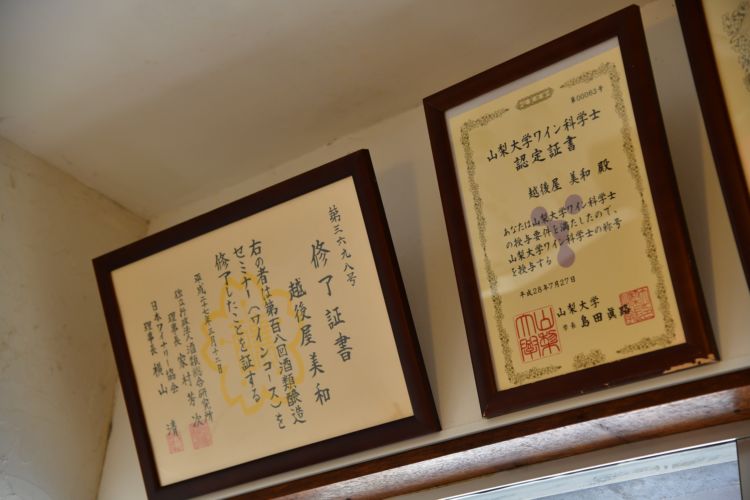 第三六九八号
修了証書
越後屋美和
右の者は第百八回酒類醸造
セミナー(ワインコース)を
修了したことを証する
平成二十七年三月十二日
独立行政法人酒類総合研究所
理事長 家村芳次
日本ワイナリー協会
理事長 横山 清
第00063号
山梨大学ワイン科学士
認定証書
越後屋 美和 殿
あなたは山梨大学ワイン科学士
の授与要件を満たしたので、
山梨大学ワイン科学士の称号
を授与する
平成28年7月27日
山梨大学
学長 島田眞路
山梨大学